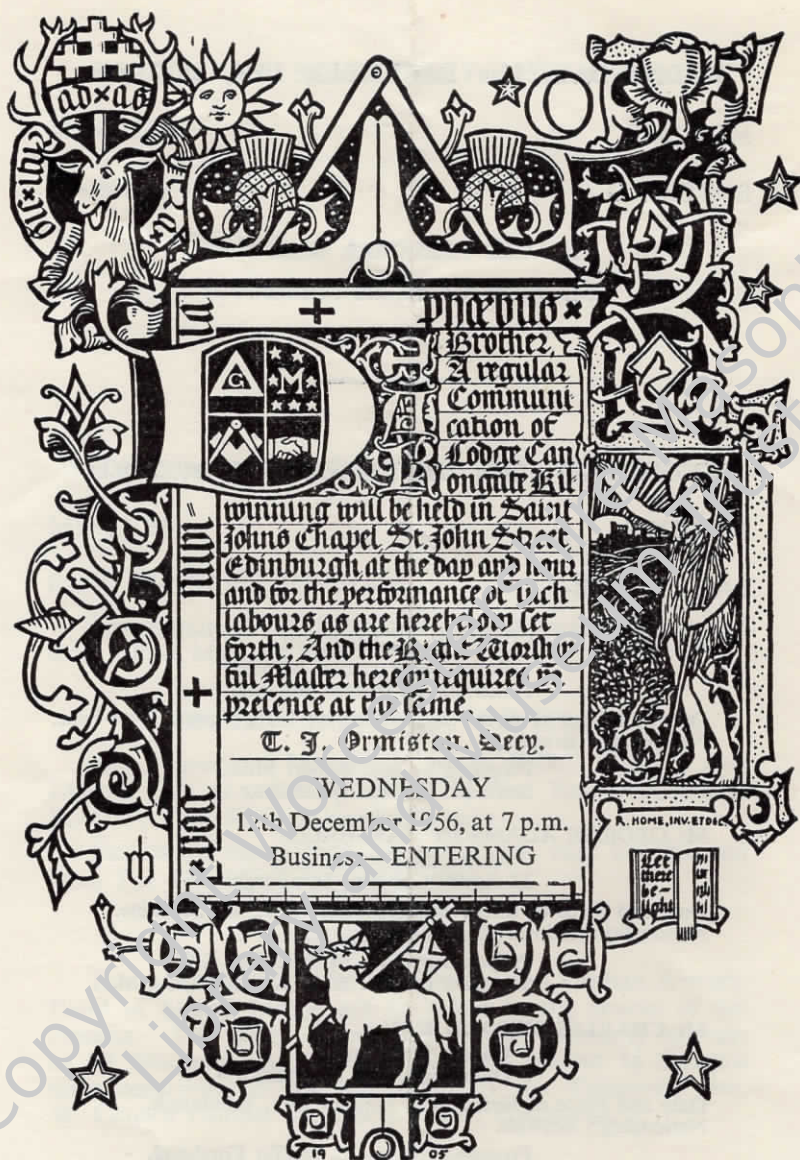 ad×as
la + phœbus ×
DEAR Brother,
A regular
Communi
cation of
Lodge Can
ongate Kil
winning will be held in Saint
Johns Chapel, St. John Street
Edinburgh at the day and hour
and for the performance of such
labours as are herebelow set
forth; And the Right Worship
ful Master hereby requires yr.
presence at the same.
T. J. Ormiston, Secy.
WEDNESDAY
12th December 1956, at 7 p.m.
Business—ENTERING
G
M
R. HOME, INV. ET DEL.
Let
there
be—
light
19 05
Copyright Worcestershire Masonic
Library and Museum Trust